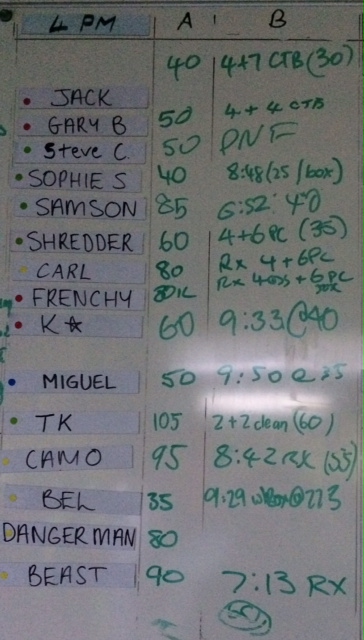 4 PM A B
40 4+7 CTB (30)
JACK
50 4+4 CTB
GARY B
Steve C. 50 DNF
SOPHIE S 40 8:48 (25 / box)
SAMSON 85 6:52 40
SHREDDER 60 4+6 PC (35)
CARL 80 Rx 4+6PC
FRENCHY 80 Rx + 6 PC
K☆ 60 9:33 @40
MIGUEL 50 9:50 @ 35
TK 105 2+2 clean (60)
CAMO 95 8:42 RX (55)
BEL 35 9:29
DANGERMAN 80
BEAST 90 7:13 RX